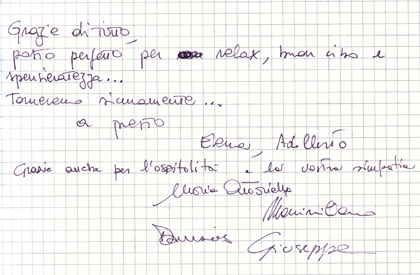 Grazie di tutto,
posto perfetto per relax, buon cibo e
spensieratezza...
Torneremo sicuramente...
a presto
Elena,
Grazie anche per l'ospitalità e la vostra simpatia
Maria
Massimiliano
Giuseppe